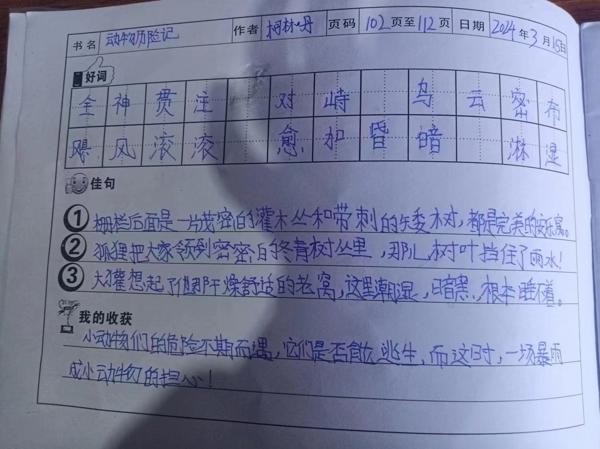 书名 动物历险记 作者 柯林·丹 页码 102页至112页 日期 2024年3月15日
好词
全神贯注 对峙 乌云密布
飓风滚滚 愈加昏暗 淋湿
佳句
① 栅栏后面是一片茂密的灌木丛和带刺的矮树,都是完美的安乐窝。
② 狐狸把大家领到密密的冬青树丛里,那儿树叶挡住了雨水!
③ 大獾想起了他那干燥舒适的老窝,这里潮湿,暗黑,根本睡不着。
我的收获
小动物们的危险不期而遇,它们是否能逃生,而这时,一场暴雨
成小动物们的担心!